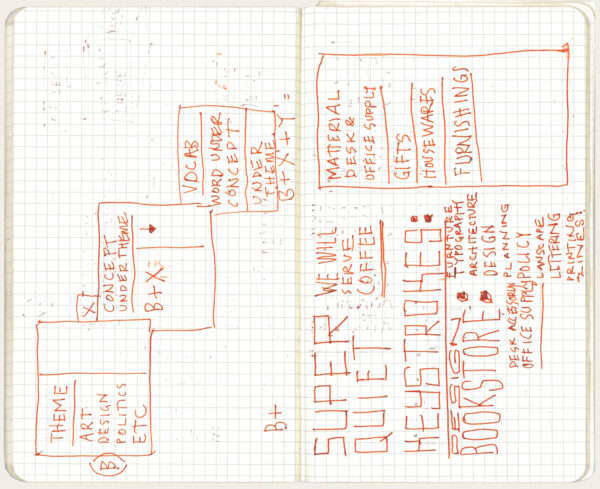 B
THEME
ART
DESIGN
POLITICS
ETC
X
CONCEPT
UNDER THEME
B+X
VOCAB
WORD UNDER
CONCEPT
UNDER
THEME
B+X+Y=
B+
SUPER
QUIET
WE WILL
SERVE
COFFEE
KEYSTROKES:
DESIGN
BOOKSTORE
FURNITURE
TYPOGRAPHY
ARCHITECTURE
DESIGN
PLANNING
DESK ACCESSORY
OFFICE SUPPLY
POLICY
LANSCAPE
LETTERING
PRINTING
ZINES!
MATTERIAL
DESK &
OFFICE SUPPLY
GIFTS
HOUSEWARES
FURNISHINGS